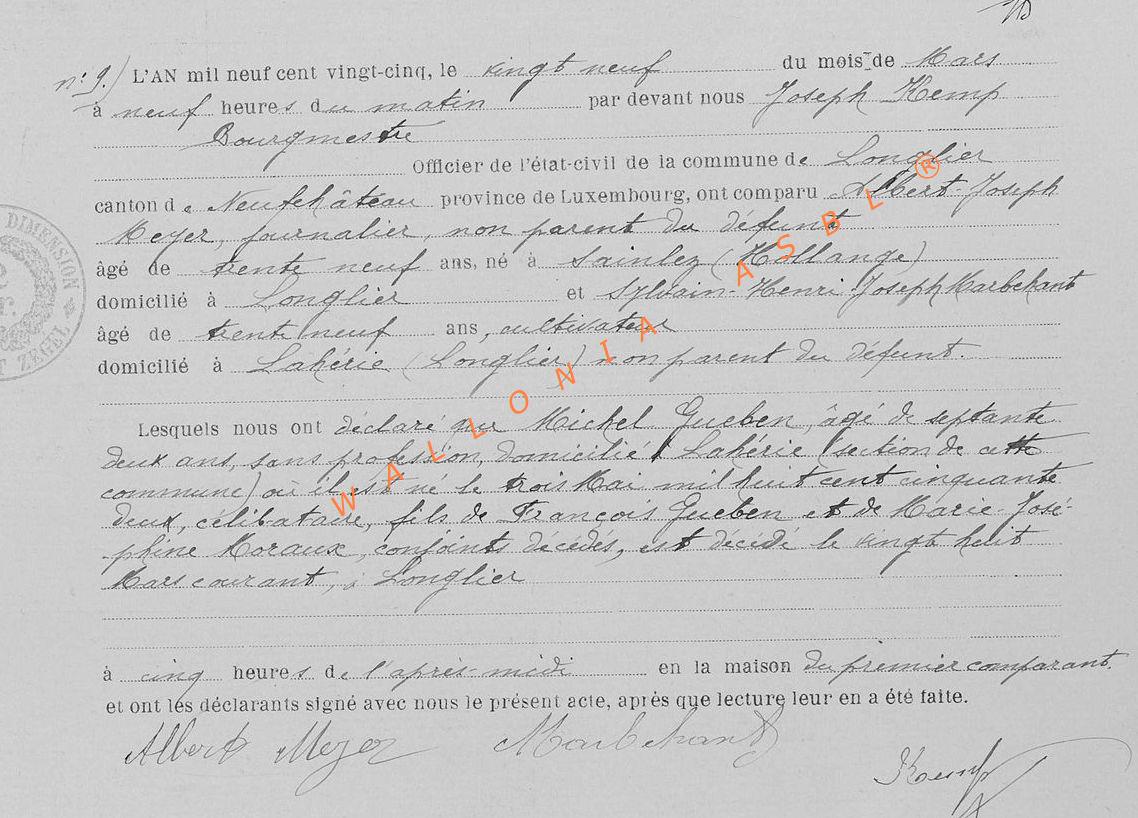 n° 9.) L'AN mil neuf cent vingt-cinq, le vingt neuf du mois de Mars
à neuf heures du matin par devant nous Joseph Kemp
Bourgmestre
Officier de l'état-civil de la commune de Longlier
canton de Neufchâteau province de Luxembourg, ont comparu Albert-Joseph
Meyer, journalier, non parent du défunt
âgé de trente neuf ans, né à Sainlez (Hollange)
domicilié à Longlier et Sylvain-Henri Joseph Marbehant
âgé de trente neuf ans, cultivateur
domicilié à Lahérie (Longlier) non parent du défunt.
Lesquels nous ont déclaré que Michel Gueben, âgé de septante
deux ans, sans profession, domicilié à Lahérie (section de cette
commune) où il est né le trois Mai mil huit cent cinquante
deux, célibataire, fils de François Gueben et de Marie-José-
phine Moraux, conjoints décédés, est décédé le vingt huit
Mars courant, à Longlier
à cinq heures de l'après-midi en la maison du premier comparant.
et ont les déclarants signé avec nous le présent acte, après que lecture leur en a été faite.
Albert Meyer Marbehant
Kemp
DIMENSION
ZEGEL
WALLONIA ASBL®